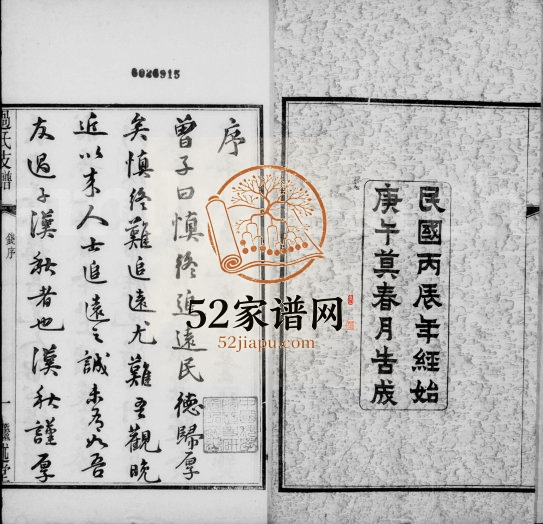 民國丙辰年經始
庚午莫春月告成
6026915
序
曾子曰慎終追遠民德歸厚
矣慎終難追遠尤難吾觀晚
近以来人士追遠之誠未有如吾
友過子漢秋者也漢秋謹厚
過氏支譜
錢序
一
52家谱网
52jiapu.com